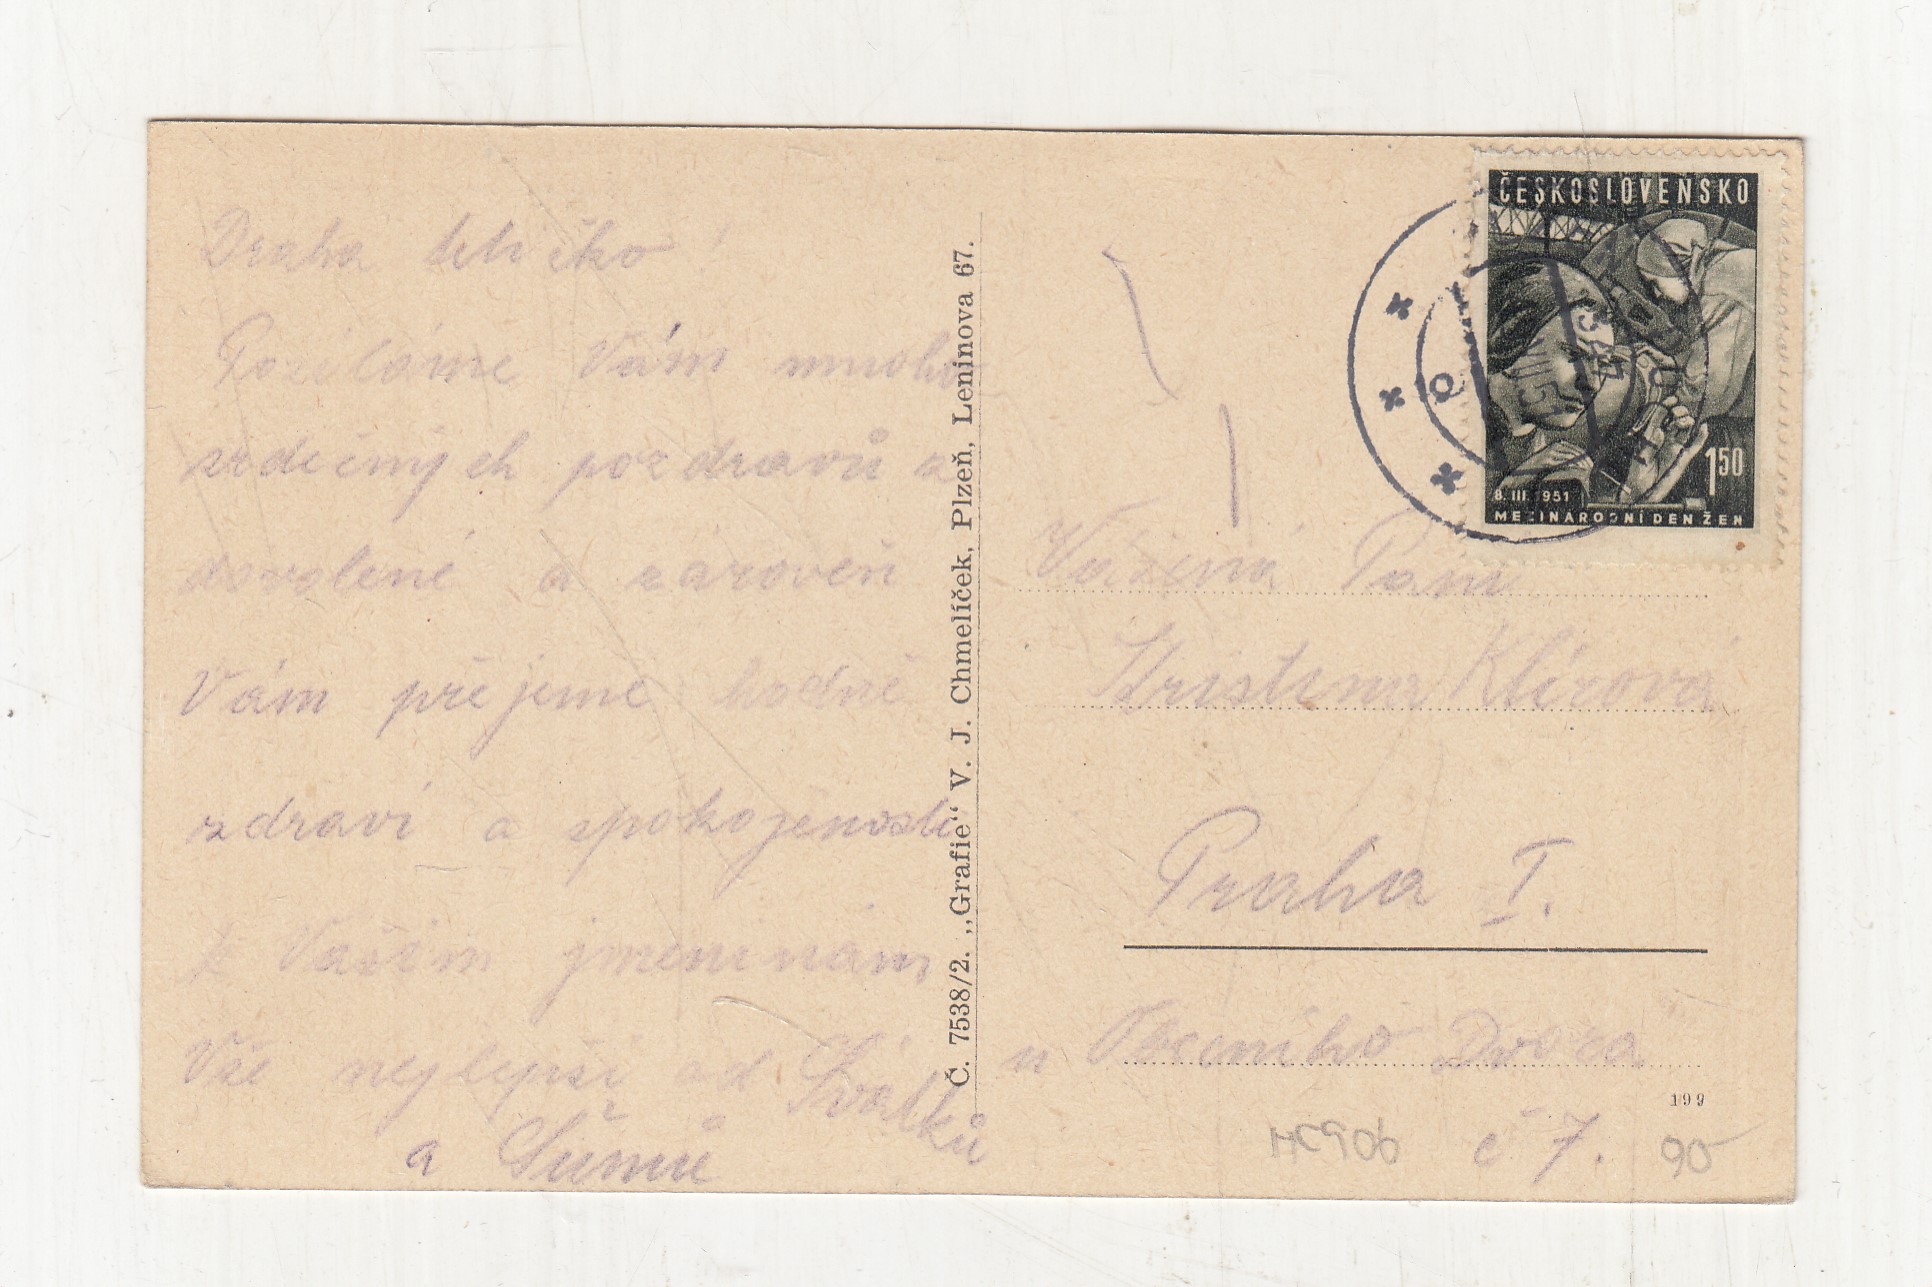 Drahá tetičko!
Posíláme Vám mnoho
srdečných pozdravů z
dovolené a zároveň
Vám přejeme hodně
zdraví a spokojenosti
k Vašim jmeninám
Vše nejlepší od
a
Č. 7538/2. „Grafie“ V. J. Chmelíček, Plzeň, Leninova 67.
ČESKOSLOVENSKO
150
8. III. 1951
MEZINÁRODNÍ DEN ŽEN
Vážená Paní
Kristina Klírová
Praha I.
u Obecního Dvora
199
č 7.
90